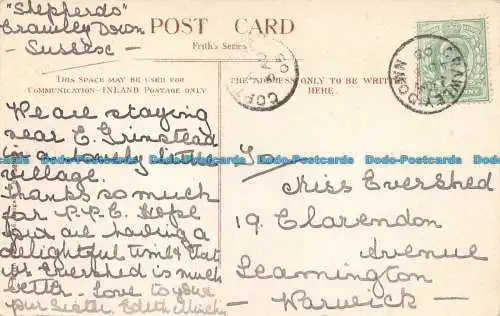 "Shepherds"
Crawley Down
- Sussex -
POST CARD
Frith's Series
THIS SPACE MAY BE USED FOR
COMMUNICATION—INLAND POSTAGE ONLY
THE ADDRESS ONLY TO BE WRITTEN
HERE.
CRAWLEY DOWN
We are staying
near E. Grinstead
in a lovely little
village.
Thanks so much
for P.P.C. Hope
you are having a
delightful time & that
Evershed is much
better. Love to your
Sister Edith
To
Miss Evershed
19, Clarendon
Avenue
Leamington
- Warwick -
Dodo-Postcards Dodo-Postcards Dodo-Postcards Dodo-Postcards Dodo-Postcards